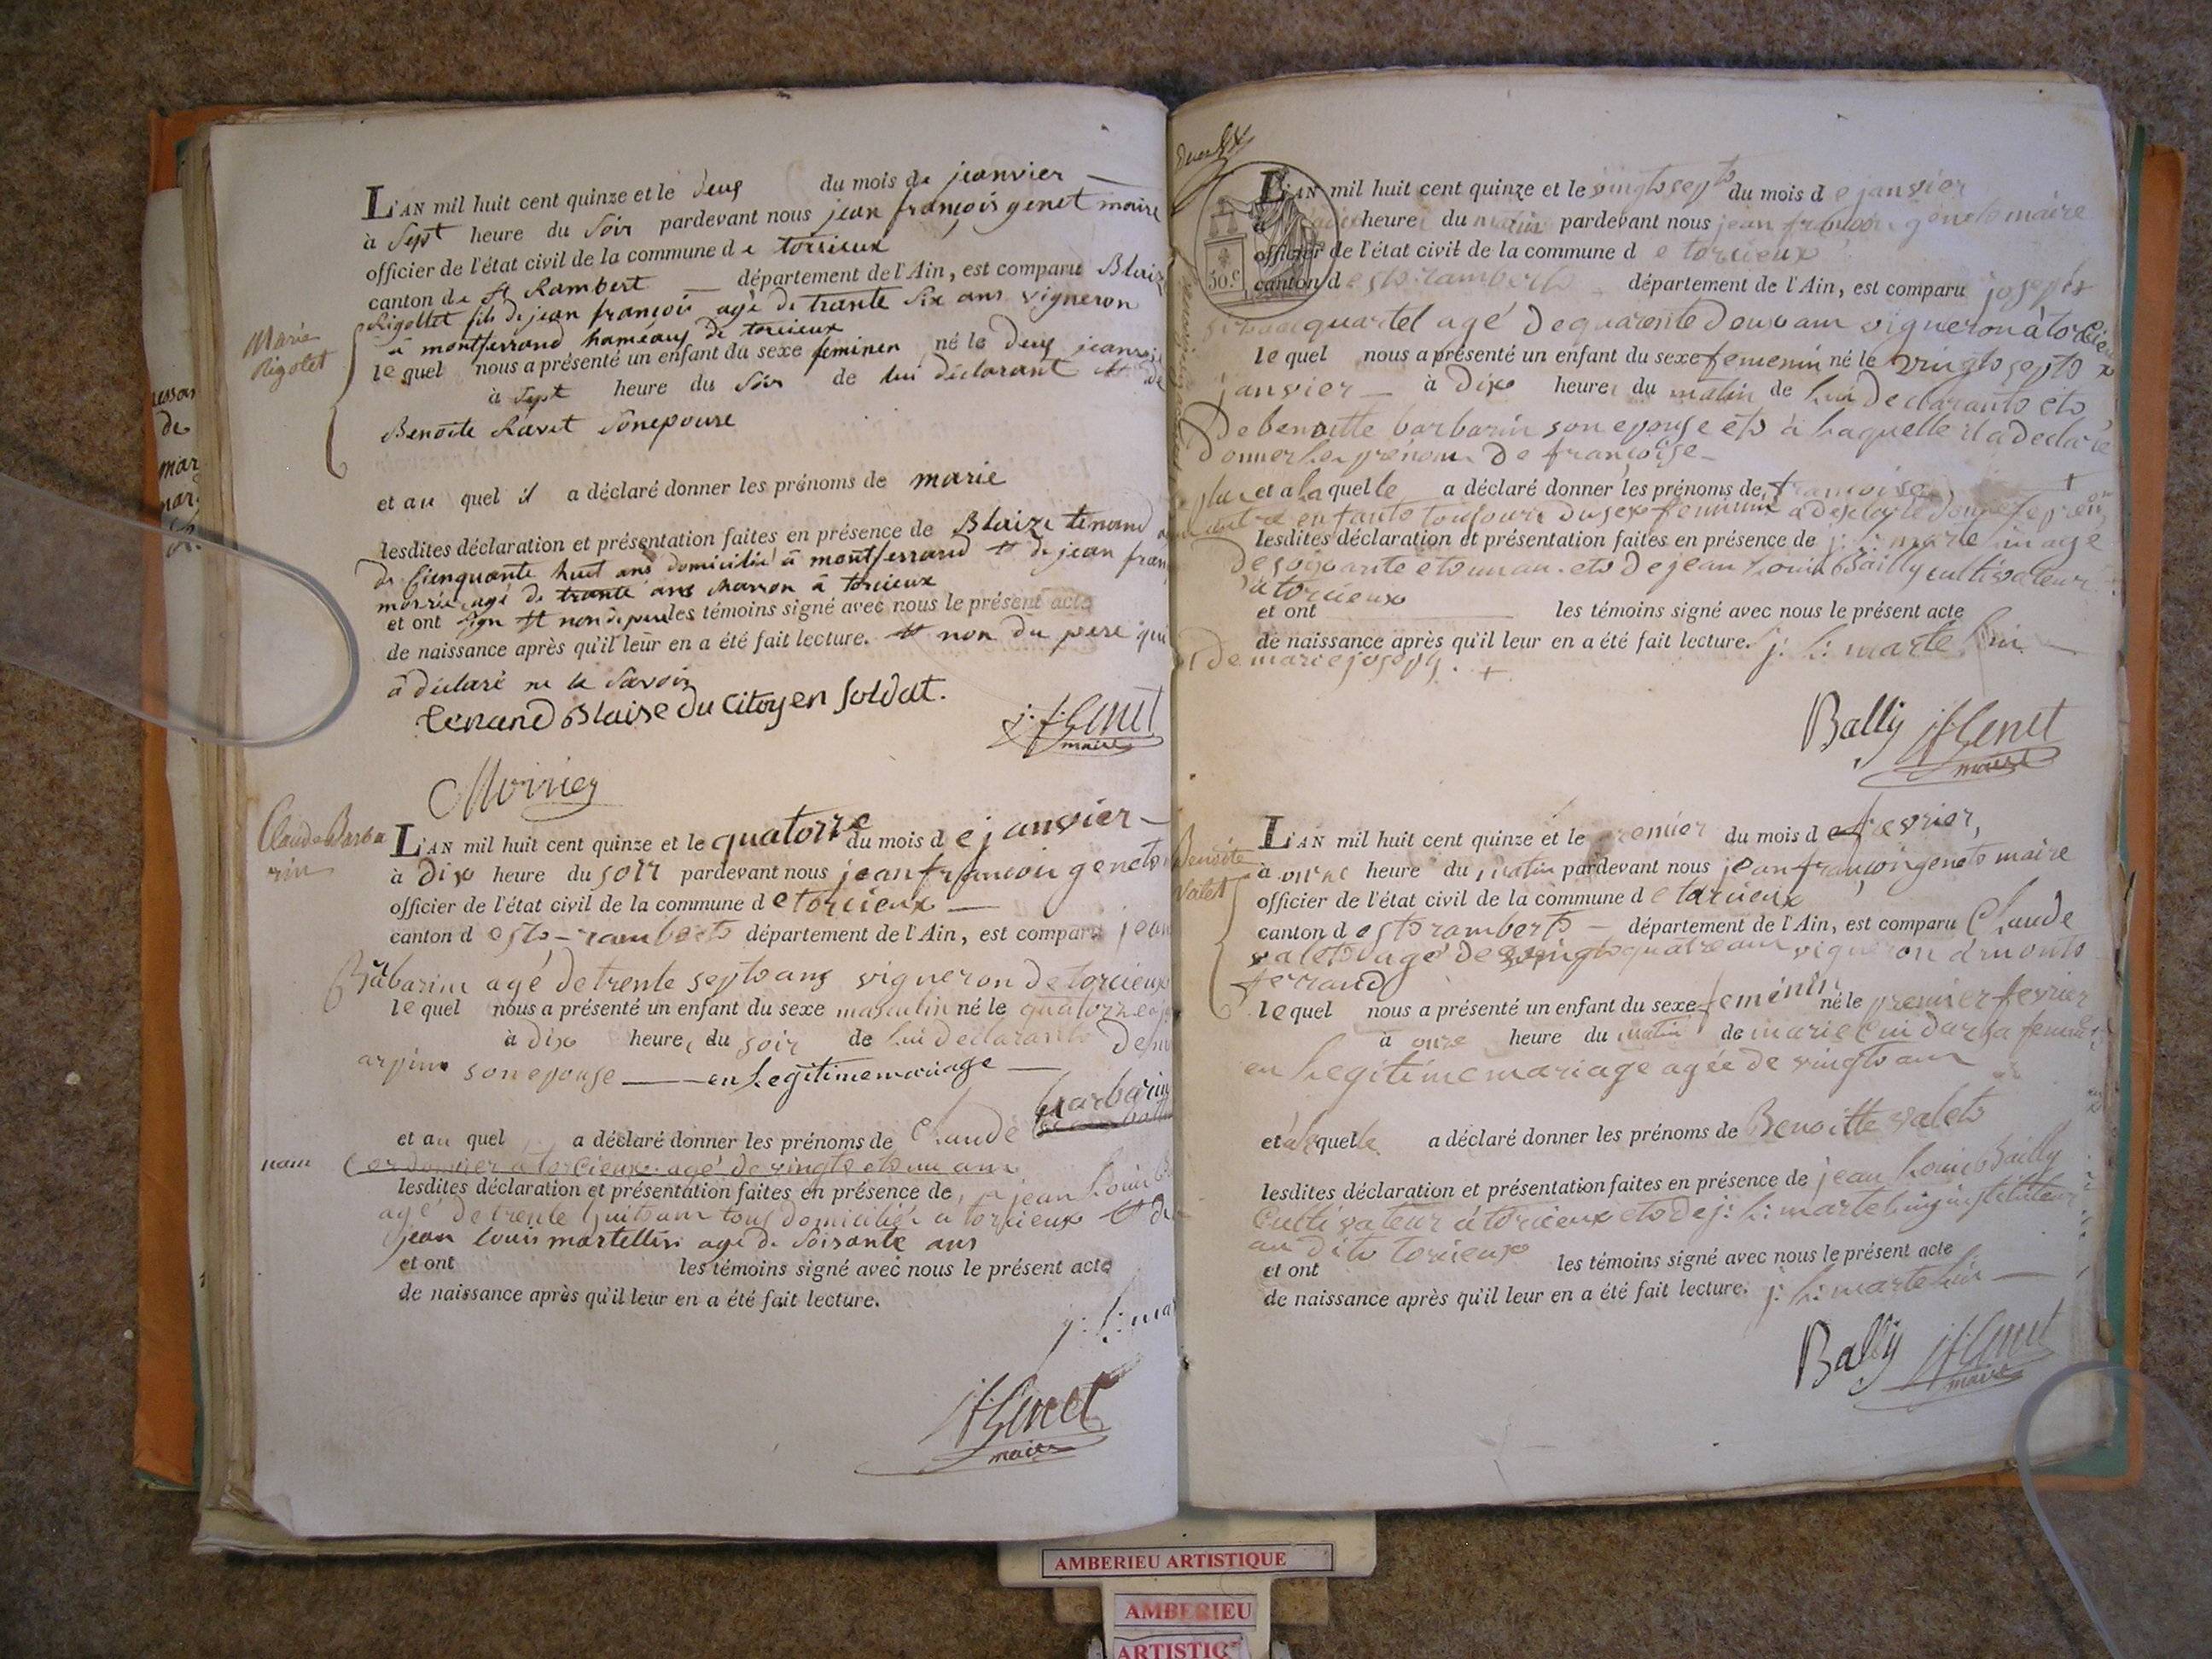 L'AN mil huit cent quinze et le deux du mois de jeanvier
à Sept heure du Soir pardevant nous jean françois genet maire
officier de l'état civil de la commune de torcieux
canton de St Rambert département de l'Ain, est comparu Blaiz
Rigollet fils de jean françois agé de trante Six ans vigneron
à montferrand hameaux de torcieux
Marie
Rigolet
lequel nous a présenté un enfant du sexe feminen né le deux
à Sept heure du Soir de lui déclarant et de
Benoite Ravet Sonepouse
et au quel il a déclaré donner les prénoms de marie
lesdites déclaration et présentation faites en présence de Blaize tenand
de Cienquante huit ans domicilié à montferrand et de jean fran
agé de trante ans charron à torcieux
et ont signé et non le père les témoins signé avec nous le présent acte
de naissance après qu'il leur en a été fait lecture. et non du pere qui
à déclaré ne le Savoir
tenand Blaise du Citoyen Soldat.
j. f. Genet
maire
Claude Barba
rin
L'AN mil huit cent quinze et le quatorze du mois de janvier
à dix heure du soir pardevant nous jean françois genet
officier de l'état civil de la commune de torcieux
canton de st rambert département de l'Ain, est comparu jean
Barbarin agé de trente sept ans vigneron de torcieux
lequel nous a présenté un enfant du sexe masculin né le quatorze
à dix heure, du soir de lui déclarant
arpin son epouse en legitime mariage
barbarin
et au quel a déclaré donner les prénoms de Claude
Cordonnier à torcieux agé de vingt et un ans
lesdites déclaration et présentation faites en présence de jean Louis
agé de trente huit ans tous domiciliés à torcieux et de
jean louis martellin agé de Soisante ans
et ont les témoins signé avec nous le présent acte
de naissance après qu'il leur en a été fait lecture.
j: l: mar
jf Genet
maire
50.c
L'AN mil huit cent quinze et le vingt sept du mois de janvier
heure du matin pardevant nous jean françois genet maire
officier de l'état civil de la commune de torcieux
canton de st rambert département de l'Ain, est comparu joseph
quartel agé de quarente deux ans vigneron à torcieux
lequel nous a présenté un enfant du sexe femenin né le vingt sept
janvier à dix heures du matin de lui declarant et
de benoitte barbarin son epouse et à laquelle il a declaré
donner les prénoms de françoise
plus et a la quelle a déclaré donner les prénoms de françoise
autre enfant toujours du sexe feminin a declaré donner le prenom
lesdites déclaration et présentation faites en présence de j: l: martelin agé
de soixante et un an et de jean Louis Bailly cultivateur
à torcieux
et ont les témoins signé avec nous le présent acte
de naissance après qu'il leur en a été fait lecture. j: l: martelin
de marie joseph. +
Bally jf Genet
maire
Benoite
Valet
L'AN mil huit cent quinze et le premier du mois de fevrier,
à onze heure du matin pardevant nous jean françois genet maire
officier de l'état civil de la commune de torcieux
canton de st rambert département de l'Ain, est comparu Claude
valet agé de vingt quatre ans vigneron à mont
ferrand
lequel nous a présenté un enfant du sexe feménin né le premier fevrier
à onze heure du matin de marie sa femme
en legitime mariage agée de vingt ans
et à la quelle a déclaré donner les prénoms de Benoitte valet
lesdites déclaration et présentation faites en présence de jean Louis Bailly
Cultivateur à torcieux et de j: l: martelin instituteur
au dit torcieux
et ont les témoins signé avec nous le présent acte
de naissance après qu'il leur en a été fait lecture. j: l: martelin
Bally jf Genet
maire
AMBERIEU ARTISTIQUE
AMBERIEU
ARTISTIQ